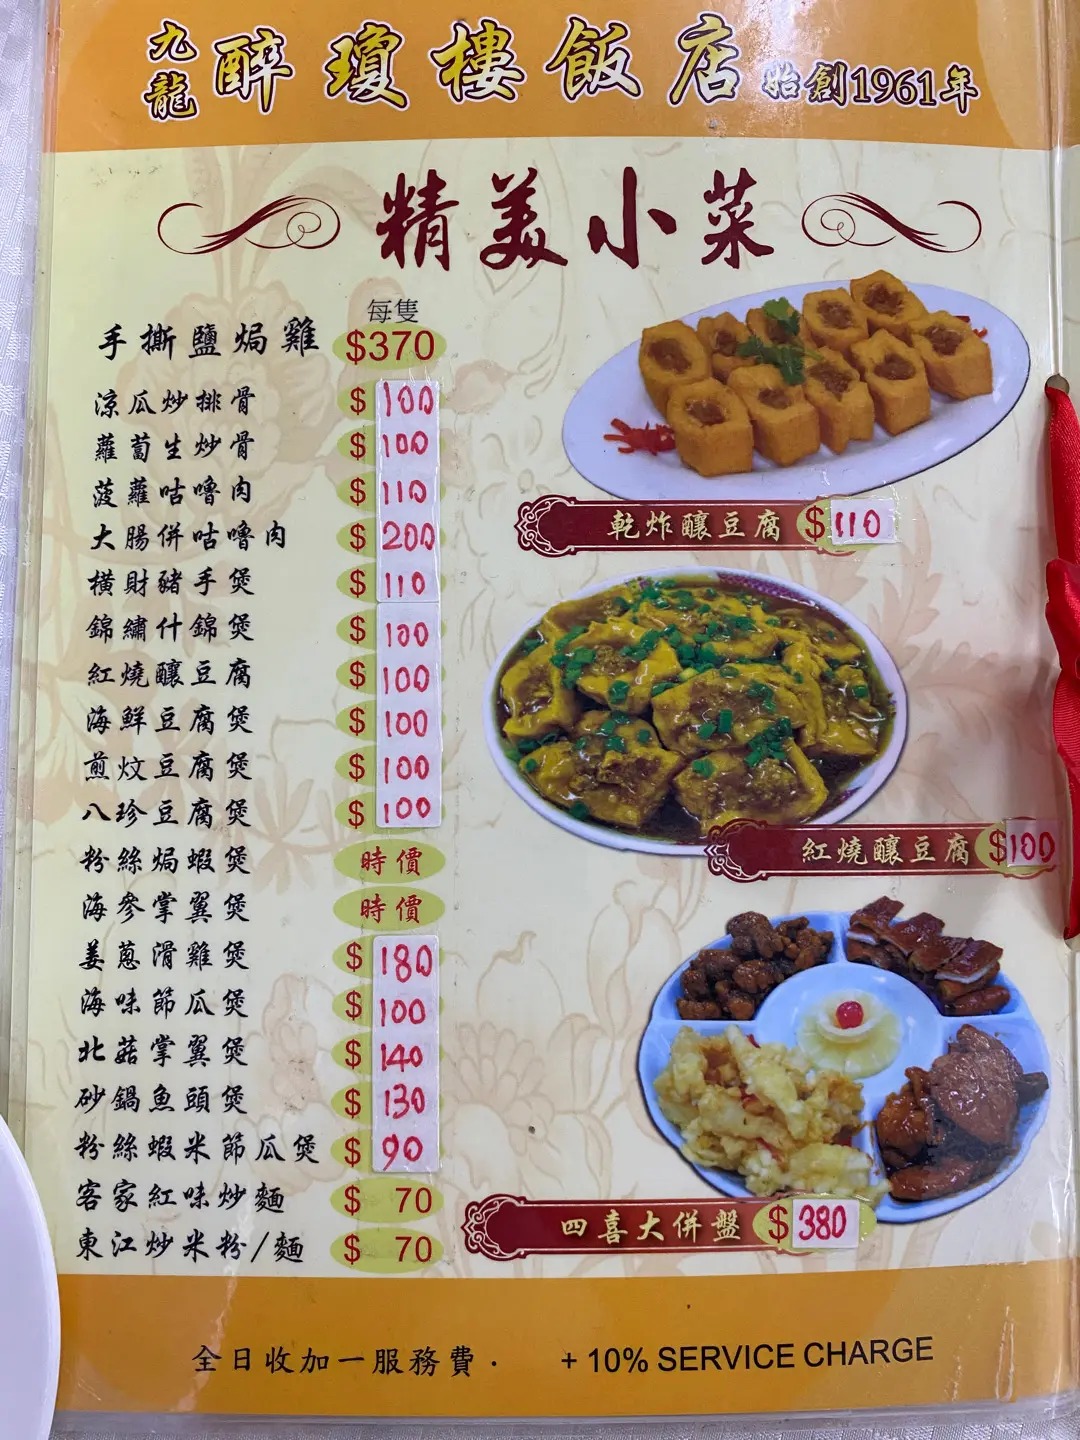 九龍 醉瓊樓飯店 始創1961年
精美小菜
每隻
手撕鹽焗雞 $370
涼瓜炒排骨 $100
蘿蔔生炒骨 $100
菠蘿咕嚕肉 $110
大腸併咕嚕肉 $200
橫財豬手煲 $110
錦繡什錦煲 $100
紅燒釀豆腐 $100
海鮮豆腐煲 $100
煎炆豆腐煲 $100
八珍豆腐煲 $100
粉絲焗蝦煲 時價
海參掌翼煲 時價
姜蔥滑雞煲 $180
海味節瓜煲 $100
北菇掌翼煲 $140
砂鍋魚頭煲 $130
粉絲蝦米節瓜煲 $90
客家紅味炒麵 $ 70
東江炒米粉/麵 $ 70
乾炸釀豆腐 $110
紅燒釀豆腐 $100
四喜大併盤 $380
全日收加一服務費． + 10% SERVICE CHARGE